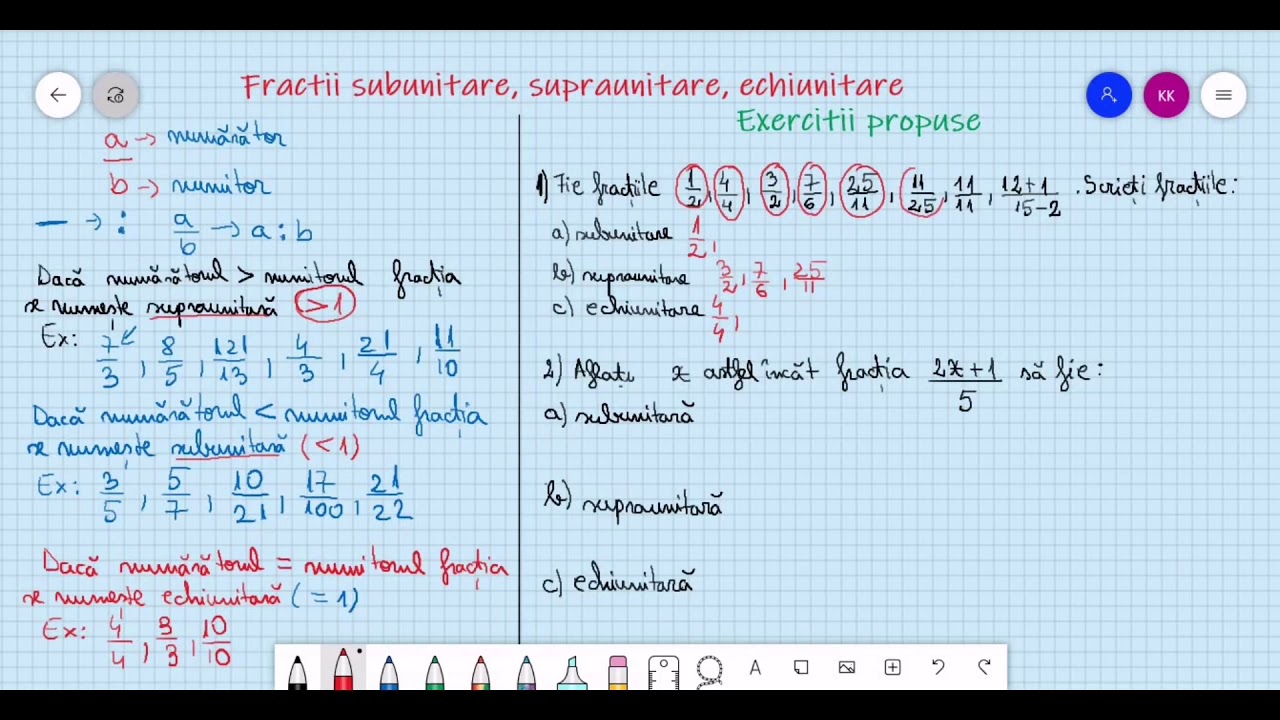 Fractii subunitare, supraunitare, echiunitare
Exercitii propuse
KK
a → numărător
b → numitor
— → : a/b → a : b
Dacă numărătorul > numitorul fracția
se numește supraunitară > 1
Ex: 7/3, 8/5, 121/13, 4/3, 21/4, 11/10
Dacă numărătorul < numitorul fracția
se numește subunitară (< 1)
Ex: 3/5, 5/7, 10/21, 17/100, 21/22
Dacă numărătorul = numitorul fracția
se numește echiunitară (= 1)
Ex: 4/4, 3/3, 10/10
1) Fie fracțiile 1/2, 4/4, 3/2, 7/6, 25/11, 11/25, 11/11, 12+1/15-2. Scrieți fracțiile:
a) subunitare 1/2,
b) supraunitare 3/2, 7/6, 25/11
c) echiunitare 4/4,
2) Aflați x astfel încât fracția 2x+1/5 să fie:
a) subunitară
b) supraunitară
c) echiunitară
A